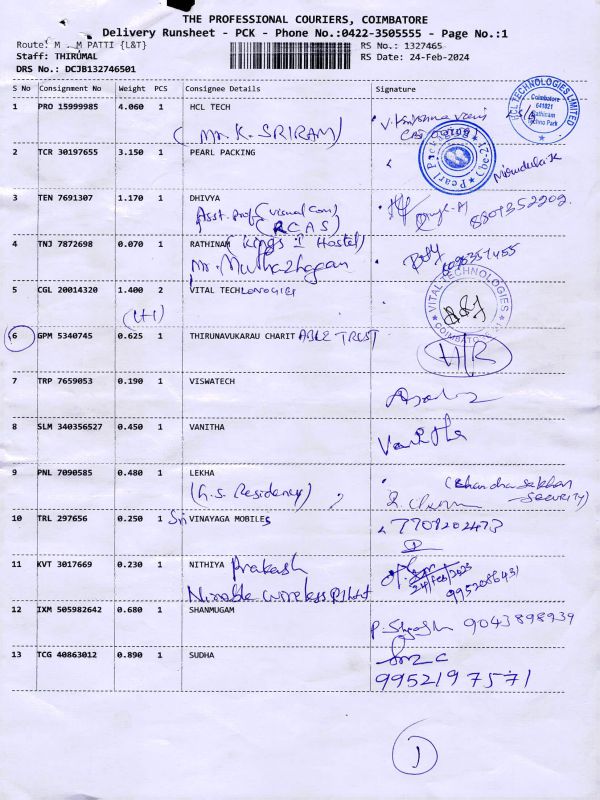 THE PROFESSIONAL COURIERS, COIMBATORE
Delivery Runsheet - PCK - Phone No.:0422-3505555 - Page No.:1
Route: M . M PATTI {L&T} RS No.: 1327465
Staff: THIRUMAL RS Date: 24-Feb-2024
DRS No.: DCJB132746501
S No Consignment No Weight PCS Consignee Details Signature
1 PRO 15999985 4.060 1 HCL TECH
(Mr. K. SRIRAM)
HCL TECHNOLOGIES LIMITED
Coimbatore
641021
Rathinam
Techno Park
2 TCR 30197655 3.150 1 PEARL PACKING
Pearl Packing
3 TEN 7691307 1.170 1 DHIVYA
Asst. prof (visual com)
(RCAS) 8807352202.
4 TNJ 7872698 0.070 1 RATHINAM (Kings 1 Hostel)
Mr. Muthazhagan
5 CGL 20014320 1.400 2 VITAL TECHLONOGIES
(1+1)
VITAL TECHNOLOGIES
COIMBATORE
6 GPM 5340745 0.625 1 THIRUNAVUKARAU CHARITABLE TRUST
H/R
7 TRP 7659053 0.190 1 VISWATECH
8 SLM 340356527 0.450 1 VANITHA
Vanitha
9 PNL 7090585 0.480 1 LEKHA
(G.S. Residency)
Security)
10 TRL 297656 0.250 1 Sri VINAYAGA MOBILES
7708202473
11 KVT 3017669 0.230 1 NITHIYA Prakash
24/Feb/2023
9952086431
12 IXM 505982642 0.680 1 SHANMUGAM
9043898939
13 TCG 40863012 0.890 1 SUDHA
9952197571
1